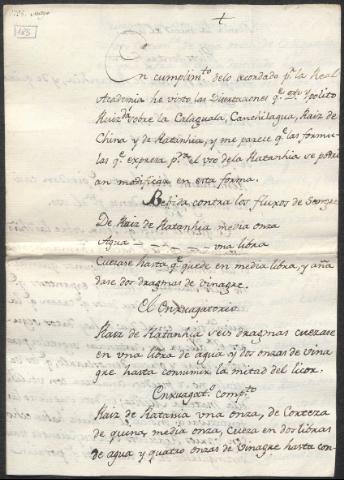 185
En cumplim.to delo acordado p.r la Real
Academia he visto las Disertaciones q.e
Ruiz sobre la Calaguala, Canchilagua, Raiz de
China y de Ratanhia, y me parece q.e las formu-
las q.e expresa p.a el uso dela Ratanhia se podri-
an modificar en esta forma.
Bebida contra los fluxos de Sangre
De Raiz de Ratanhia media onza
Agua - - - - - una libra
Cuezase hasta q.e quede en media libra, y aña
danse dos dragmas de vinagre.
El Enxuagatorio
Raiz de Ratanhia seis dragmas cuezase
en una libra de agua y dos onzas de vina
gre hasta consumir la mitad del licor.
Enxuagat.o comp.to
Raiz de Ratania una onza, de Corteza
de quina media onza, cueza en dos libras
de agua y quatro onzas de vinagre hasta con-